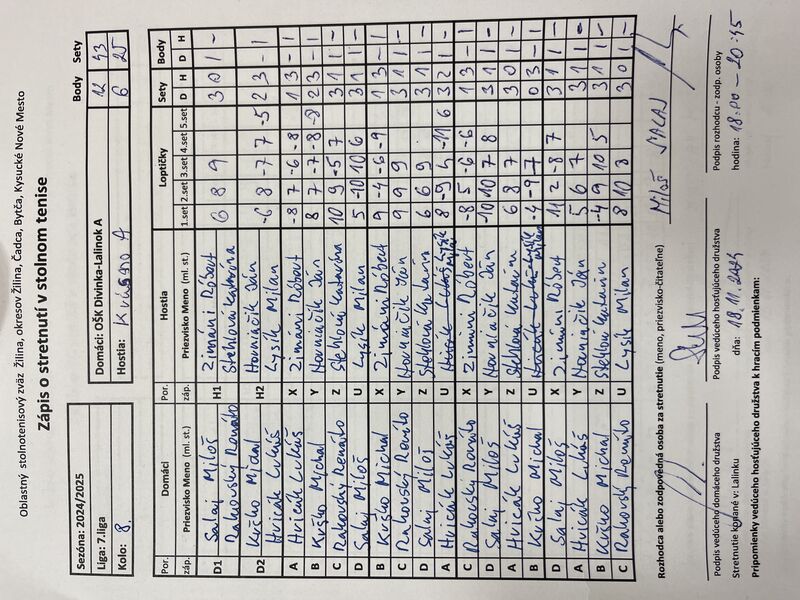 Oblastný stolnotenisový zväz Žilina, okresov Žilina, Čadca, Bytča, Kysucké Nové Mesto
Zápis o stretnutí v stolnom tenise
Sezóna: 2024/2025
Liga: 7.liga
Kolo: 8.
Body Sety
Domáci: OŠK Divinka-Lalinok A 12 43
Hostia: A 6 25
Por. Domáci Por. Hostia Loptičky Sety Body
záp. Priezvisko Meno (ml. st.) záp. Priezvisko Meno (ml. st.) 1.set 2.set 3.set 4.set 5.set D H D H
D1 Salaj Miloš H1 Zimáni Róbert 6 8 9 3 0 1 -
Rakovský Renáto Stehlová Katarína
D2 Krčko Michal H2 Hovniačik Ján -6 8 -7 7 -5 2 3 - 1
Hvizák Lukáš Lysik Milan
A Hvizák Lukáš X Zimáni Róbert -8 7 -6 -8 1 3 - 1
B Krčko Michal Y Hovniačik Ján 8 7 -7 -8 -9 2 3 - 1
C Rakovský Renáto Z Stehlová Katarína 10 9 -5 7 3 1 1 -
D Salaj Miloš U Lysik Milan 5 -10 10 6 3 1 1 -
B Krčko Michal X Zimáni Róbert 9 -4 -6 -9 1 3 - 1
C Rakovský Renáto Y Hovniačik Ján 9 9 9 3 1 1 -
D Salaj Miloš Z Stehlová Katarín 6 6 9 3 1 1 -
A Hvizák Lukáš U 8 -9 4 -11 6 3 2 1 -
C Rakovský Renáto X Zimáni Róbert -8 5 -6 -6 1 3 - 1
D Salaj Miloš Y Hovniačik Ján -10 10 7 8 3 1 1 -
A Hvizák Lukáš Z Stehlová Katarína 6 8 7 3 0 1 -
B Krčko Michal U -4 -9 -7 0 3 - 1
D Salaj Miloš X Zimáni Róbert 11 2 -8 7 3 1 1 -
A Hvizák Lukáš Y Hovniačik Ján 5 6 7 3 1 1 -
B Krčko Michal Z Stehlová Katarín -4 9 10 5 3 1 1 -
C Rakovský Renáto U Lysik Milan 8 10 8 3 0 1 -
Rozhodca alebo zodpovedná osoba za stretnutie (meno, priezvisko-čitateľne) Miloš SALAJ
Podpis vedúceho domáceho družstva Podpis vedúceho hosťujúceho družstva Podpis rozhodcu - zodp. osoby
Stretnutie konané v: Lalinku dňa: 18.11.2024 hodina: 18:00 - 20:45
Pripomienky vedúceho hosťujúceho družstva k hracím podmienkam: